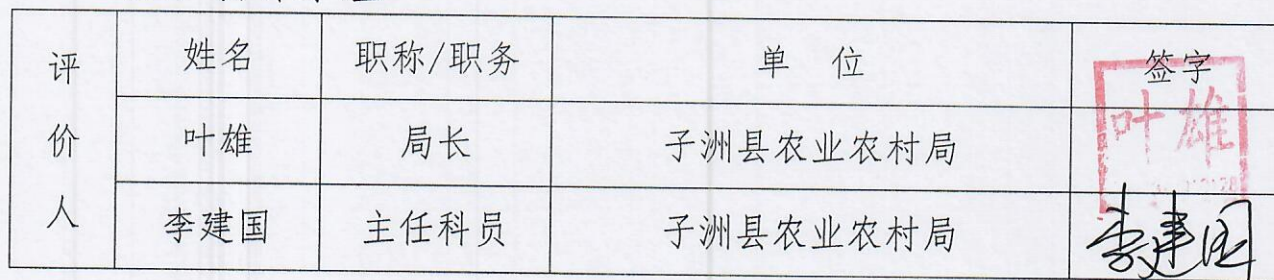 评价人
姓名 职称/职务 单 位 签字
叶雄 局长 子洲县农业农村局 叶雄
李建国 主任科员 子洲县农业农村局 李建国